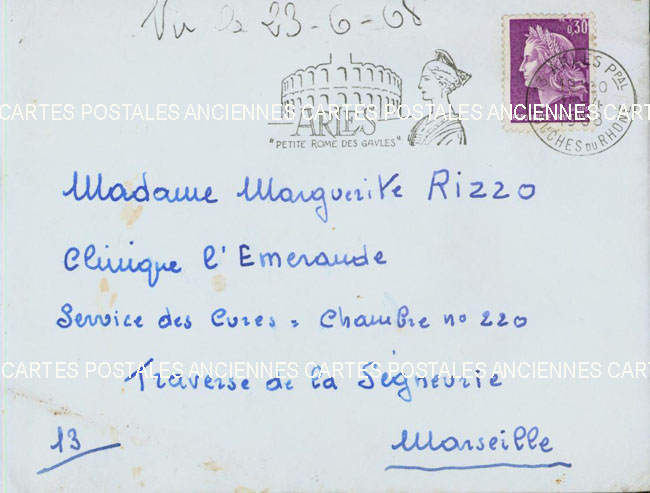 Vu le 23-6-68
0,30
ARLES PPAL
1968
BOUCHES DU RHONE
ARLES
"PETITE ROME DES GAVLES"
CARTES POSTALES ANCIENNES CARTES POSTALES ANCIENNES CARTES POSTALES ANCIENNES CART
Madame Marguerite Rizzo
Clinique l'Emeraude
Service des Cures = Chambre no 220
CARTES POSTALES ANCIENNES CARTES POSTALES ANCIENNES CARTES POSTALES ANCIENNES CART
Traverse de la Ségneurie
13 Marseille